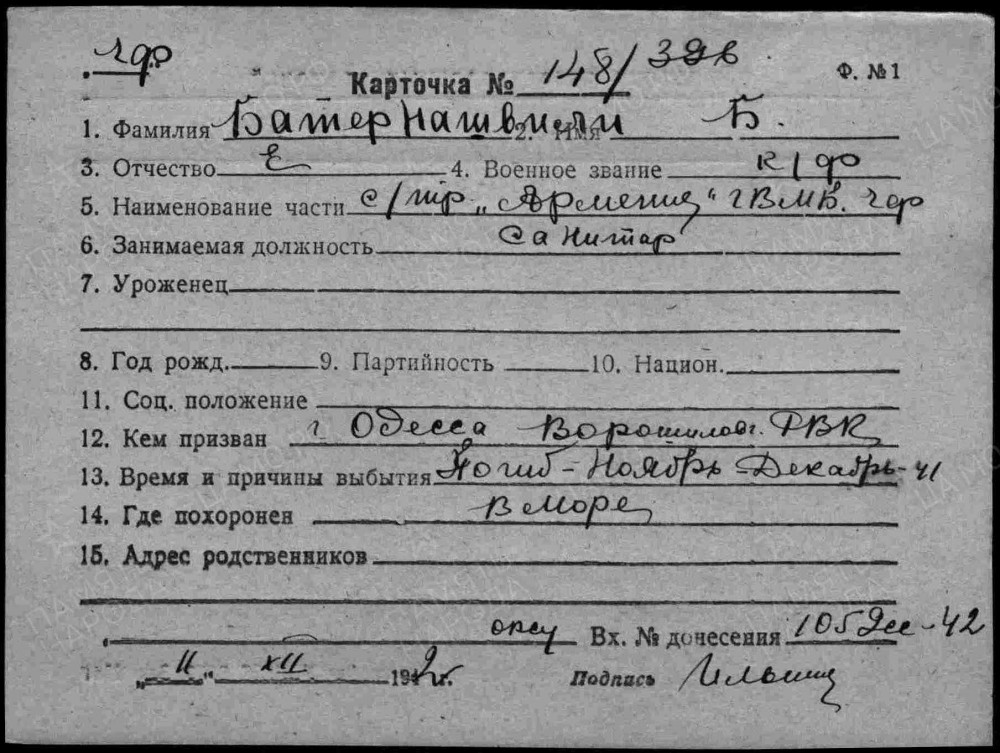 чф
Карточка № 148/ Ф. №1
1. Фамилия Батернашвили 2. Имя Б.
3. Отчество Е 4. Военное звание к/ф
5. Наименование части с/тр „Армения“ ГВМБ. чф
6. Занимаемая должность Санитар
7. Уроженец
8. Год рожд. 9. Партийность 10. Национ.
11. Соц. положение
12. Кем призван г Одесса Ворошиловг. РВК
13. Время и причины выбытия Погиб - Ноябрь - Декабрь - 41
14. Где похоронен В море
15. Адрес родственников
Вх. № донесения 105 - 42
„11“ XII 1942г. Подпись